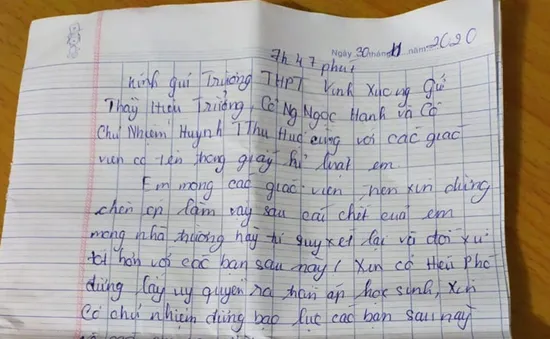 Ngày 30 tháng 11 năm 2020
7h 47 phút
Kính gửi Trường THPT Vĩnh Xương Gử
Thầy Hiệu Trưởng, Cô Ng Ngọc Hạnh và Cô
Chủ Nhiệm Huỳnh T Thu Huệ cùng với các giáo
viên có tên trong giấy kỉ luật em
Em mong các giáo viên nên xin đừng
chèn ép lắm vậy sau cái chết của em
mong nhà trường hãy suy xét lại và đối xử
tốt hơn với các bạn sau này! Xin cô Hiệu Phó
đừng lấy uy quyền ra đàn áp học sinh, xin
Cô chủ nhiệm đừng bạo lực các bạn sau này